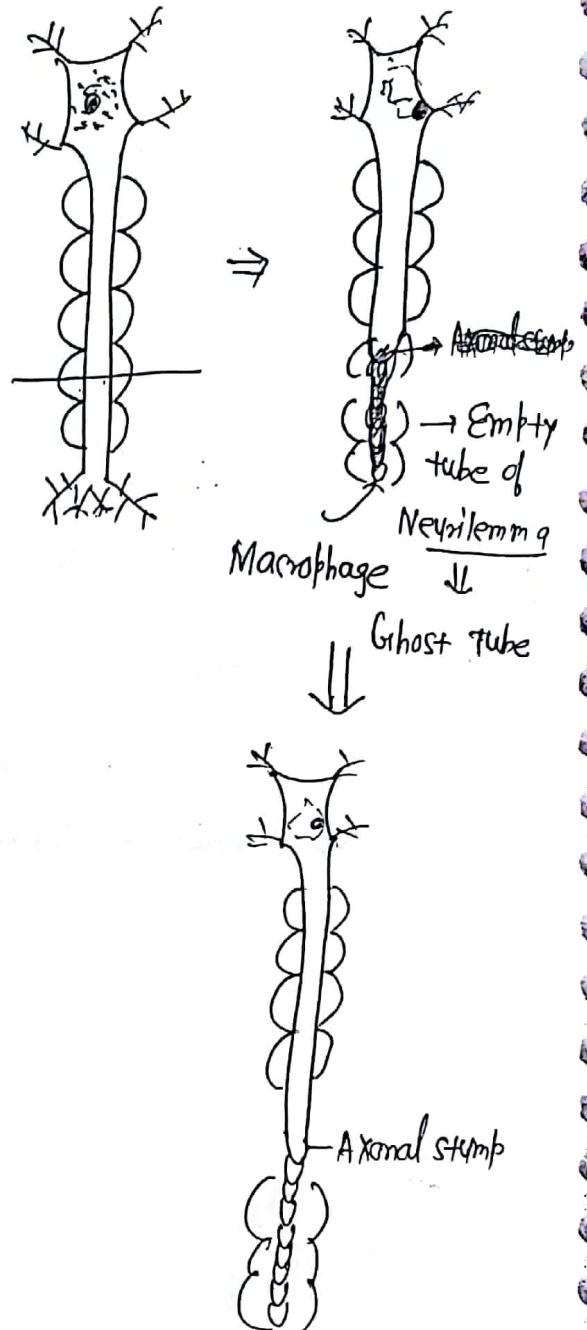 → Empty
tube of
Neurilemma
Macrophage
⇓
Ghost tube
Axonal stump